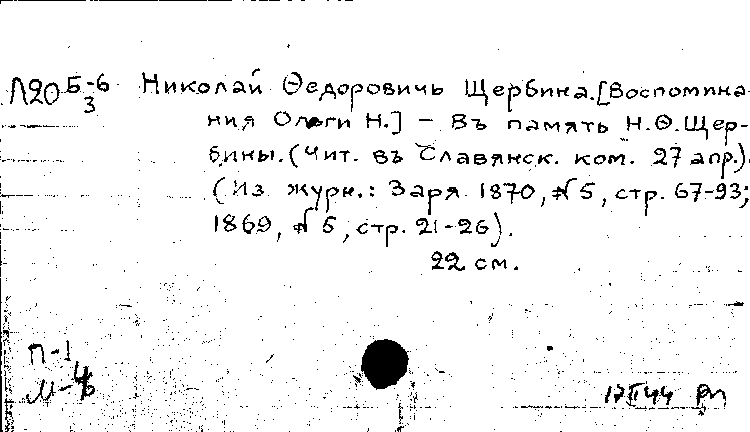 Л20 Б-6/3 Николай Ѳедоровичь Щербина. [Воспомина-
ния Ольги Н.] - Въ память Н.Ѳ. Щер-
бины. (Чит. въ Славянск. ком. 27 апр.).
(Из журн.: Заря 1870, № 5, стр. 67-93;
1869, № 5, стр. 21-26).
22 см.
П-1
17 II 44